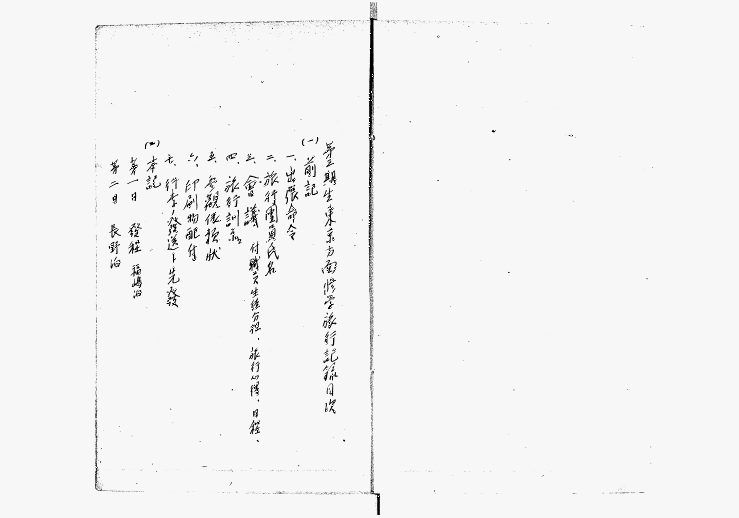 第三期生東京方面修学旅行記録目次
(一) 前記
一、出張命令
二、旅行團員氏名
三、會議 付職員生徒分担、旅行心得、日程、
四、旅行訓示
五、参觀依頼状
六、印刷物配付
七、行李ノ發送ト先發
(二) 本記
第一日 發程 福嶋泊
第二日 長野泊